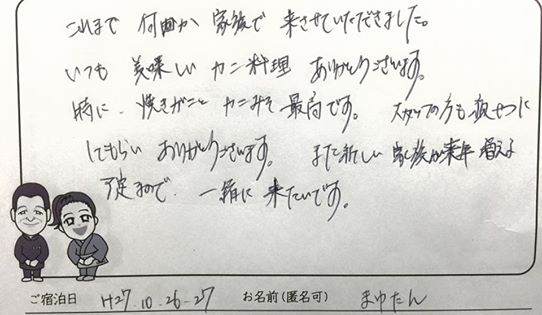 これまで 何回か 家族で 来させていただきました。
いつも 美味しい カニ料理 ありがとうございます。
特に、焼きがにと カニみそ 最高です。 スタッフの方も 親せつに
してもらい ありがとうございます。 また新しい 家族が来年 増える
予定なので、一緒に 来たいです。
ご宿泊日 H27.10.26-27 お名前(匿名可) まゆたん